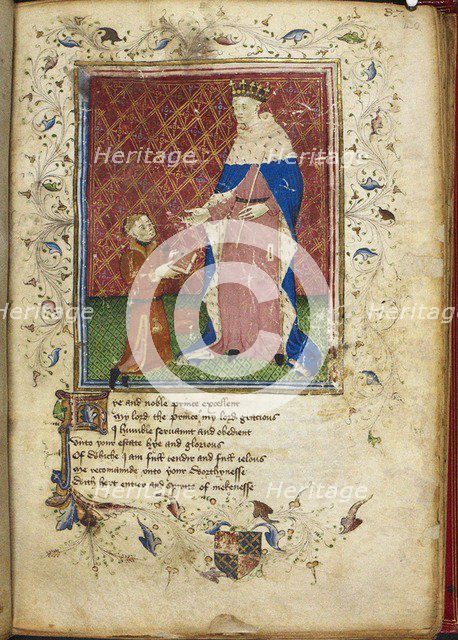 Hye and noble prince excellent
My lord the prince my lord gracious
I humble servaunt and obedient
Unto your estate hye and glorious
Of Whiche I am full tendre and full ielous
Me recomaunde unto your Worthynesse
With hert entier and spirite of mekenesse
Heritage
Heritage
Heritage
Heritage
Heritage
Heritage